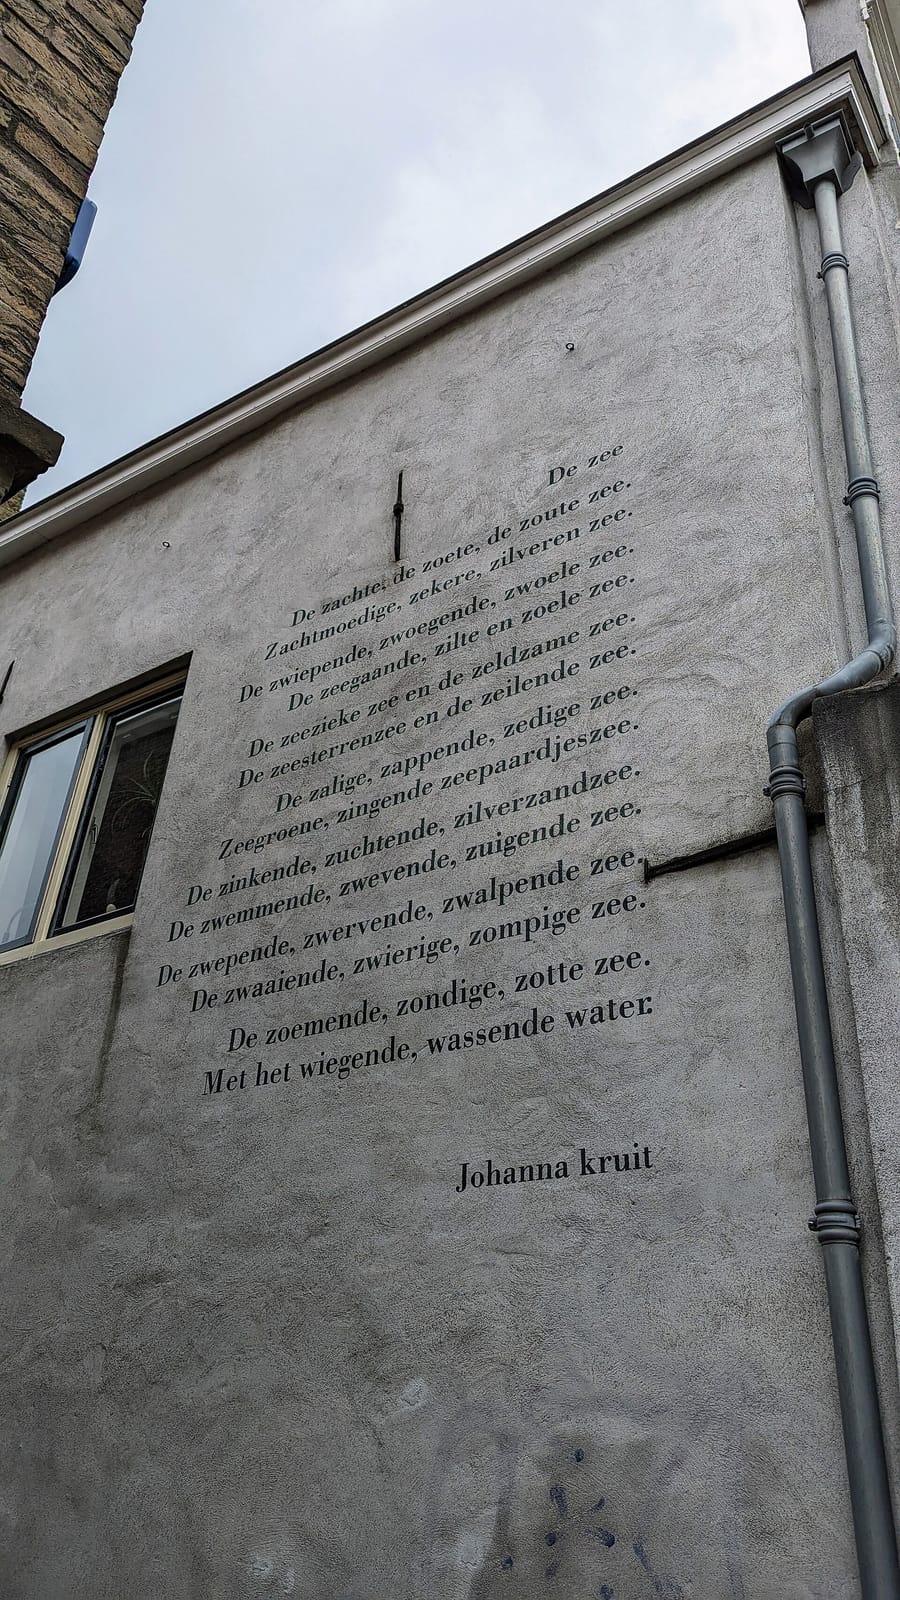 De zee
De zachte, de zoete, de zoute zee.
Zachtmoedige, zekere, zilveren zee.
De zwiepende, zwoegende, zwoele zee.
De zeegaande, zilte en zoele zee.
De zeezieke zee en de zeldzame zee.
De zeesterrenzee en de zeilende zee.
De zalige, zappende, zedige zee.
Zeegroene, zingende zeepaardjeszee.
De zinkende, zuchtende, zilverzandzee.
De zwemmende, zwevende, zuigende zee.
De zwepende, zwervende, zwalpende zee.
De zwaaiende, zwierige, zompige zee.
De zoemende, zondige, zotte zee.
Met het wiegende, wassende water.
Johanna kruit